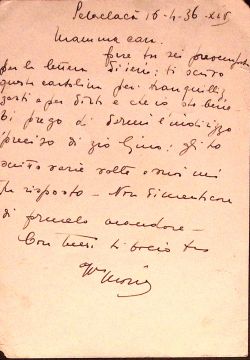 16-4-36-XIV
Mamma cara.
forse tu sei preoccupata
per la lettera di ieri; ti scrivo
questa cartolina per tranquilliz
zarti e per dirti che io sto bene.
Ti prego di darmi l'indirizzo
preciso di zio Gino; gli ho
scritto varie volte e non mi
ha risposto - Non dimenticare
di farmelo mandare -
Con baci ti bacio tuo